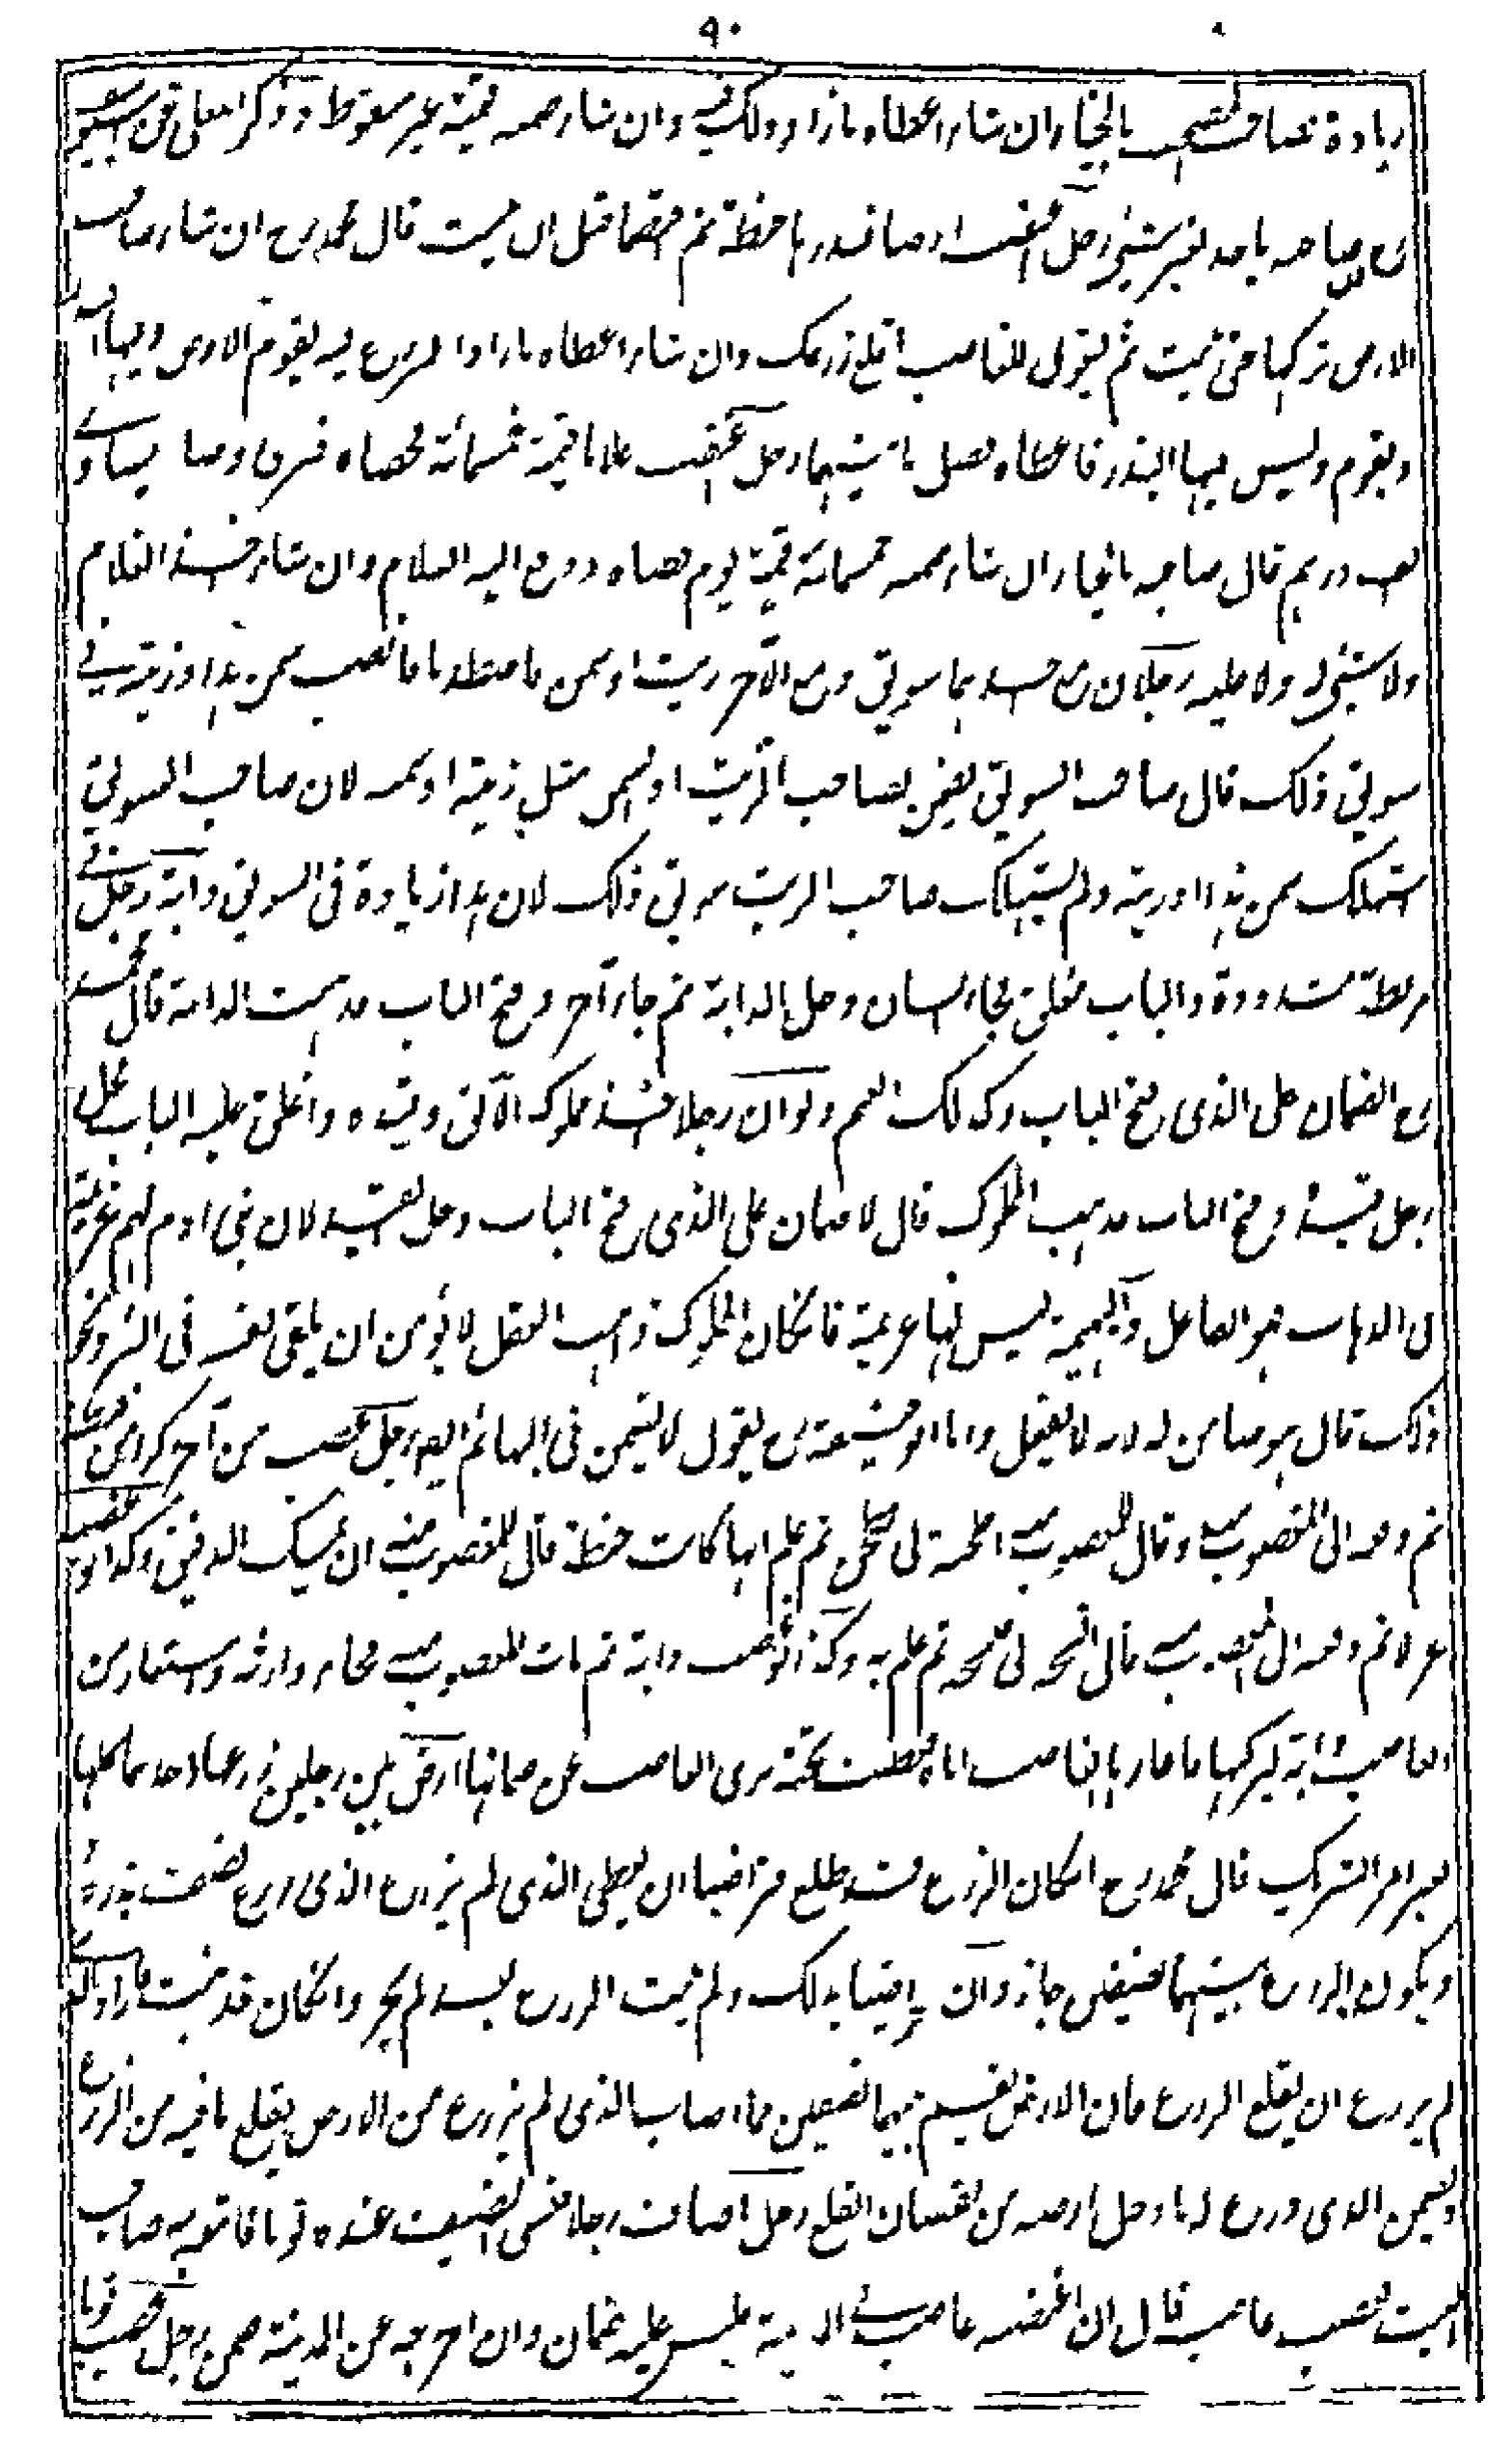 ٩٠
زيادة فصاحب المصحف بالخيار ان شاء اعطاه ما زاد ذلك فيه وان شاء ضمنه قيمته غير منقوط وذكر المعلى عن ابي يوسف
رح صاحبه ياخذه بغير شيئ رجل اغتصب ارضا فبذرها حنطة ثم اختصما قبل ان تنبت قال محمد رح ان شاء صاحب
الارض تركها حتى تنبت ثم يقول للغاصب اقلع زرعك وان شاء اعطاه ما زاد الزرع فيه يقوم الارض وفيها البذر
ويقوم وليس فيها البذر فاعطاه فضل ما بينهما رجل غصب غلاما قيمته خمسمائة فخصاه فبرئ وصار يساوي
الف درهم قال صاحبه بالخيار ان شاء ضمنه خمسمائة قيمته يوم خصاه ودفع اليه الغلام وان شاء اخذ الغلام
ولا شيئ له ولا عليه رجلان مع احدهما سويق ومع الآخر زيت او سمن فاصطدما فانصب سمن هذا او زيته في
سويق ذلك قال صاحب السويق يضمن لصاحب الزيت او السمن مثل زيته او سمنه لان صاحب السويق
استهلك سمن هذا او زيته ولم يستهلك صاحب الزيت سويق ذلك لان هذا زيادة في السويق دابة رجل في
مربطه مشدودة والباب مغلق فجاء انسان وحل الدابة ثم جاء آخر وفتح الباب فذهبت الدابة قال محمد
رح الضمان على الذي فتح الباب وكذلك الغنم ولو ان رجلا اخذ مملوكه الآبق وقيده واغلق عليه الباب فحل
رجل قيده وفتح الباب فذهب المملوك قال لا ضمان على الذي فتح الباب وحل القيد لان بني ادم لهم عزيمة
في الذهاب هو الفاعل والبهيمة ليس لها عزيمة فان كان المملوك ذاهب العقل لا يؤمن ان يلقي نفسه في البئر ونحو
ذلك قال هو ضامن له لانه لا يعقل واما ابو حنيفة رح يقول لا يضمن في البهائم ايضا رجل غصب من آخر كر حنطة
ثم دفعه الى المغصوب منه وقال للمغصوب منه اطحنه لي فطحن ثم علم انها كانت حنطة قال للمغصوب منه ان يمسك الدقيق وكذا لو غصب
غزلا ثم دفعه الى المغصوب منه قال انسجه لي فنسجه ثم علم به وكذا لو غصب دابة ثم مات المغصوب منه فجاء وارثه واستعار من
الغاصب دابة ليركبها فاعارها الغاصب اياه فعطبت تحته برئ الغاصب عن ضمانها ارض بين رجلين زرعها احدهما كلها
بغير امر الشريك قال محمد رح ان كان الزرع قد طلع فتراضيا ان يعطي الذي لم يزرع الذي زرع نصف بذره
ويكون الزرع بينهما نصفين جاز وان تراضيا بذلك ولم ينبت الزرع بعد لم يجز وان كان قد نبت فاراد الذي
لم يزرع ان يقلع الزرع فان الارض تقسم بينهما نصفين فما اصاب الذي لم يزرع من الارض يقلع ما فيه من الزرع
ويضمن الذي زرع لما دخل ارضه من نقصان القلع رجل اضاف رجلا فنسي الضيف عنده ثوبا فاتبعه به صاحب
البيت فغصب غاصب قال ان اغتصبه غاصب في المدينة فليس عليه ضمان وان اخرجه عن المدينة ضمن رجل غصب ثوبا